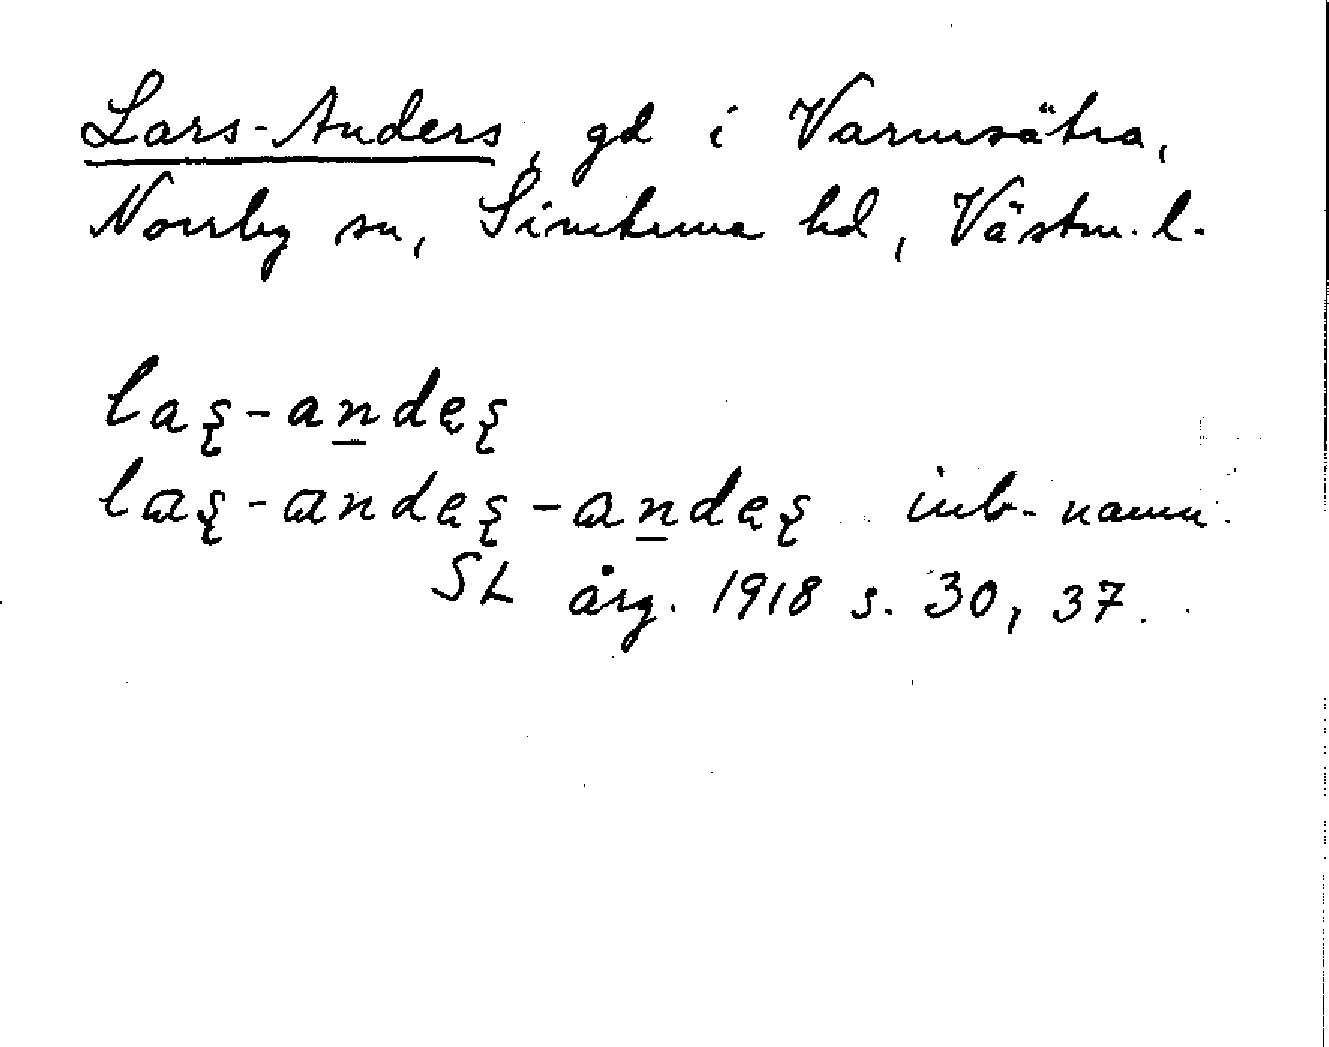 Lars-Anders, gd i Varmsätra,
Norrby sn, Simtuna hd, Västm. l.
laş-andęş
laş-andęş-andęş inb-namn.
SL årg. 1918 s. 30, 37.